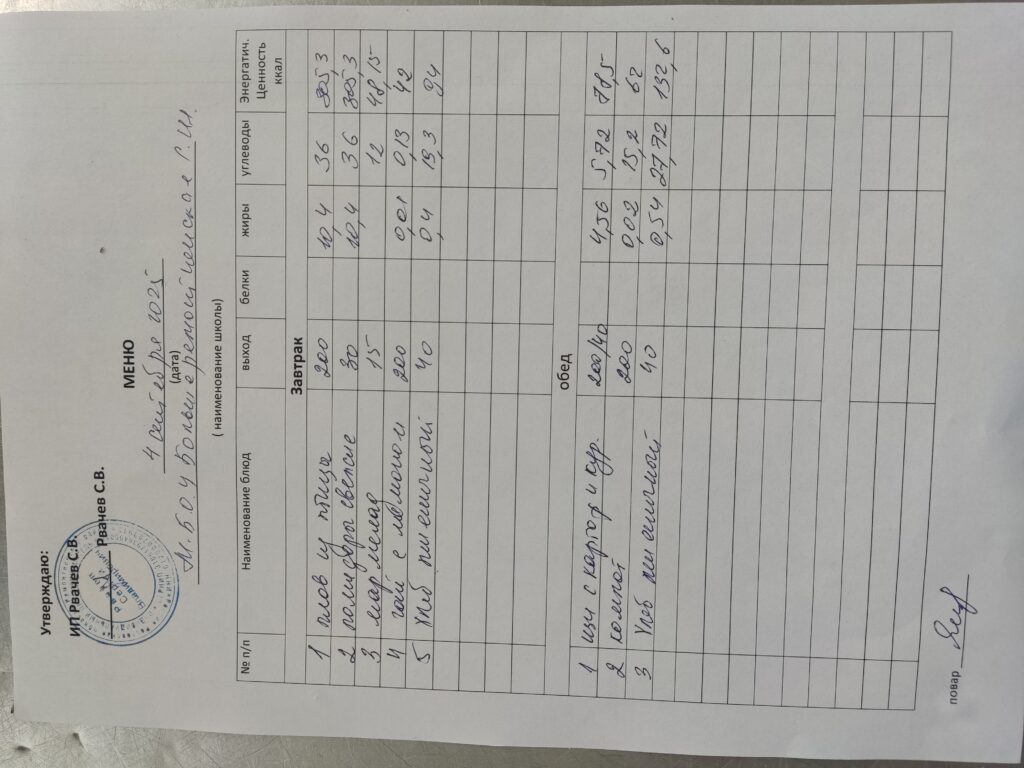 Утверждаю:
ИП Рвачев С.В.
Рвачев С.В.
МЕНЮ
4 сентября 2025
(дата)
М.Б.О.У Большеремонтненская С.Ш.
( наименование школы)
№ п/п Наименование блюд выход белки жиры углеводы Энергатич. Ценность ккал
Завтрак
1 плов из птицы 200 10,4 36 305,3
2 помидоры свежие 30 10,4 36 305,3
3 мармелад 15 12 48,15
4 чай с лимоном 200 0,01 0,13 42
5 Хлеб пшеничный 40 0,4 19,3 94
обед
1 щи с картоф и кур. 200/40 4,56 5,72 78,5
2 компот 200 0,02 15,2 62
3 Хлеб пшеничной 40 0,54 27,72 132,6
повар